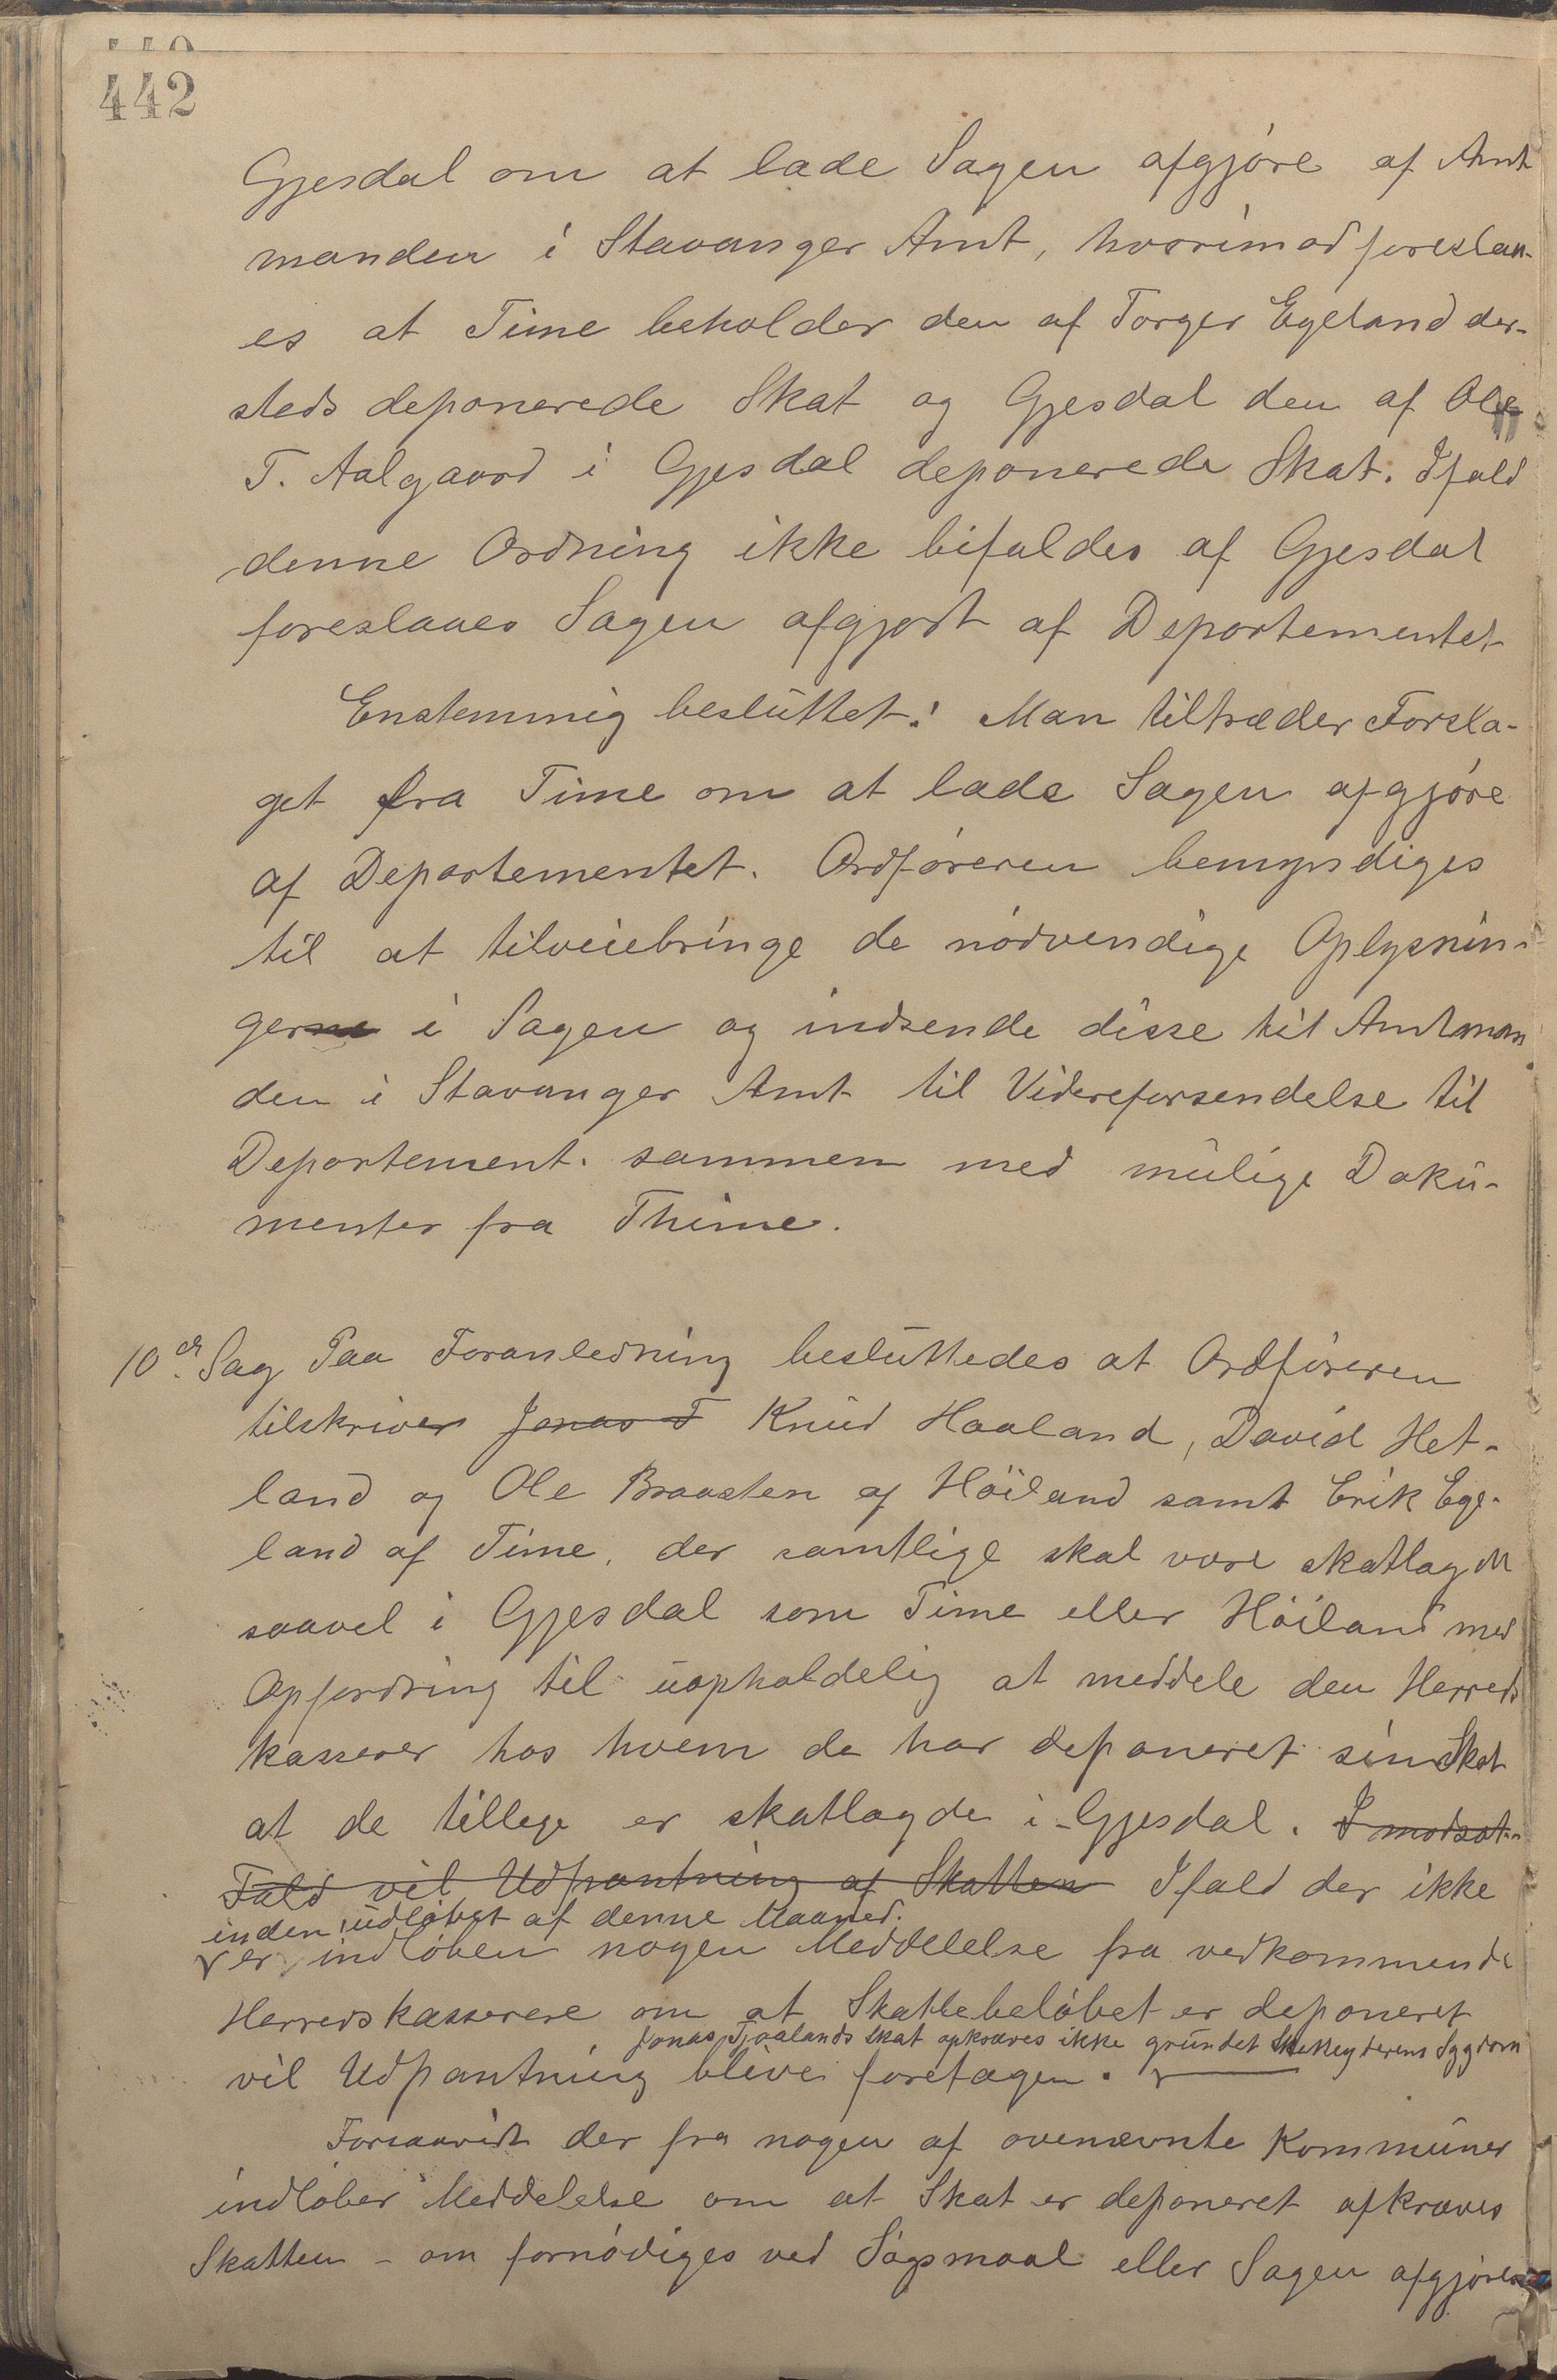 442
Gjesdal om at lade Sagen afgjøre af Amt
manden i Stavanger Amt, hvorimod foreslaa-
es at Time beholder den af Torger Egeland der-
steds deponerede Skat og Gjesdal den af Ole
T. Aalgaard i Gjesdal deponerede Skat. Ifald
denne Ordning ikke bifaldes af Gjesdal
foreslaaes Sagen afgjort af Departementet
Enstemmig besluttet: Man tiltræder Forsla-
get fra Time om at lade Sagen afgjøre
af Departementet. Ordføreren bemyndiges
til at tilveiebringe de nødvendige Oplysnin-
gerne i Sagen og indsende disse til Amtman
den i Stavanger Amt til Videreforsendelse til
Departement. sammen med mulige Doku-
menter fra Thime.
10de Sag Paa Foranledning besluttedes at Ordføreren
tilskriver Jonas T Knud Haaland, David Het-
land og Ole Braasten af Höiland samt Erik Ege-
land af Time, der samtlige skal være skatlagte
saavel i Gjesdal som Time eller Höiland med
Opfordring til uopholdelig at meddele den Herreds
kasserer hos hvem de har deponeret sin Skat
at de tillige er skatlagde i Gjesdal. I modsat
Fald vil Udpantning af Skatten Ifald der ikke
inden udløbet af denne Maaned.
er indløben nogen Meddelelse fra vedkommende
Herredskasserere om at Skattebeløbet er deponeret
Jonas Tjaalands Skat opkræves ikke grundet Skatteyderens Sygdom
vil Udpantning blive foretagen.
Forsaavidt der fra nogen af ovennævnte Kommuner
indløber Meddelelse om at Skat er deponeret afkræves
Skatten - om fornødiges ved Søgsmaal eller Sagen afgjøres